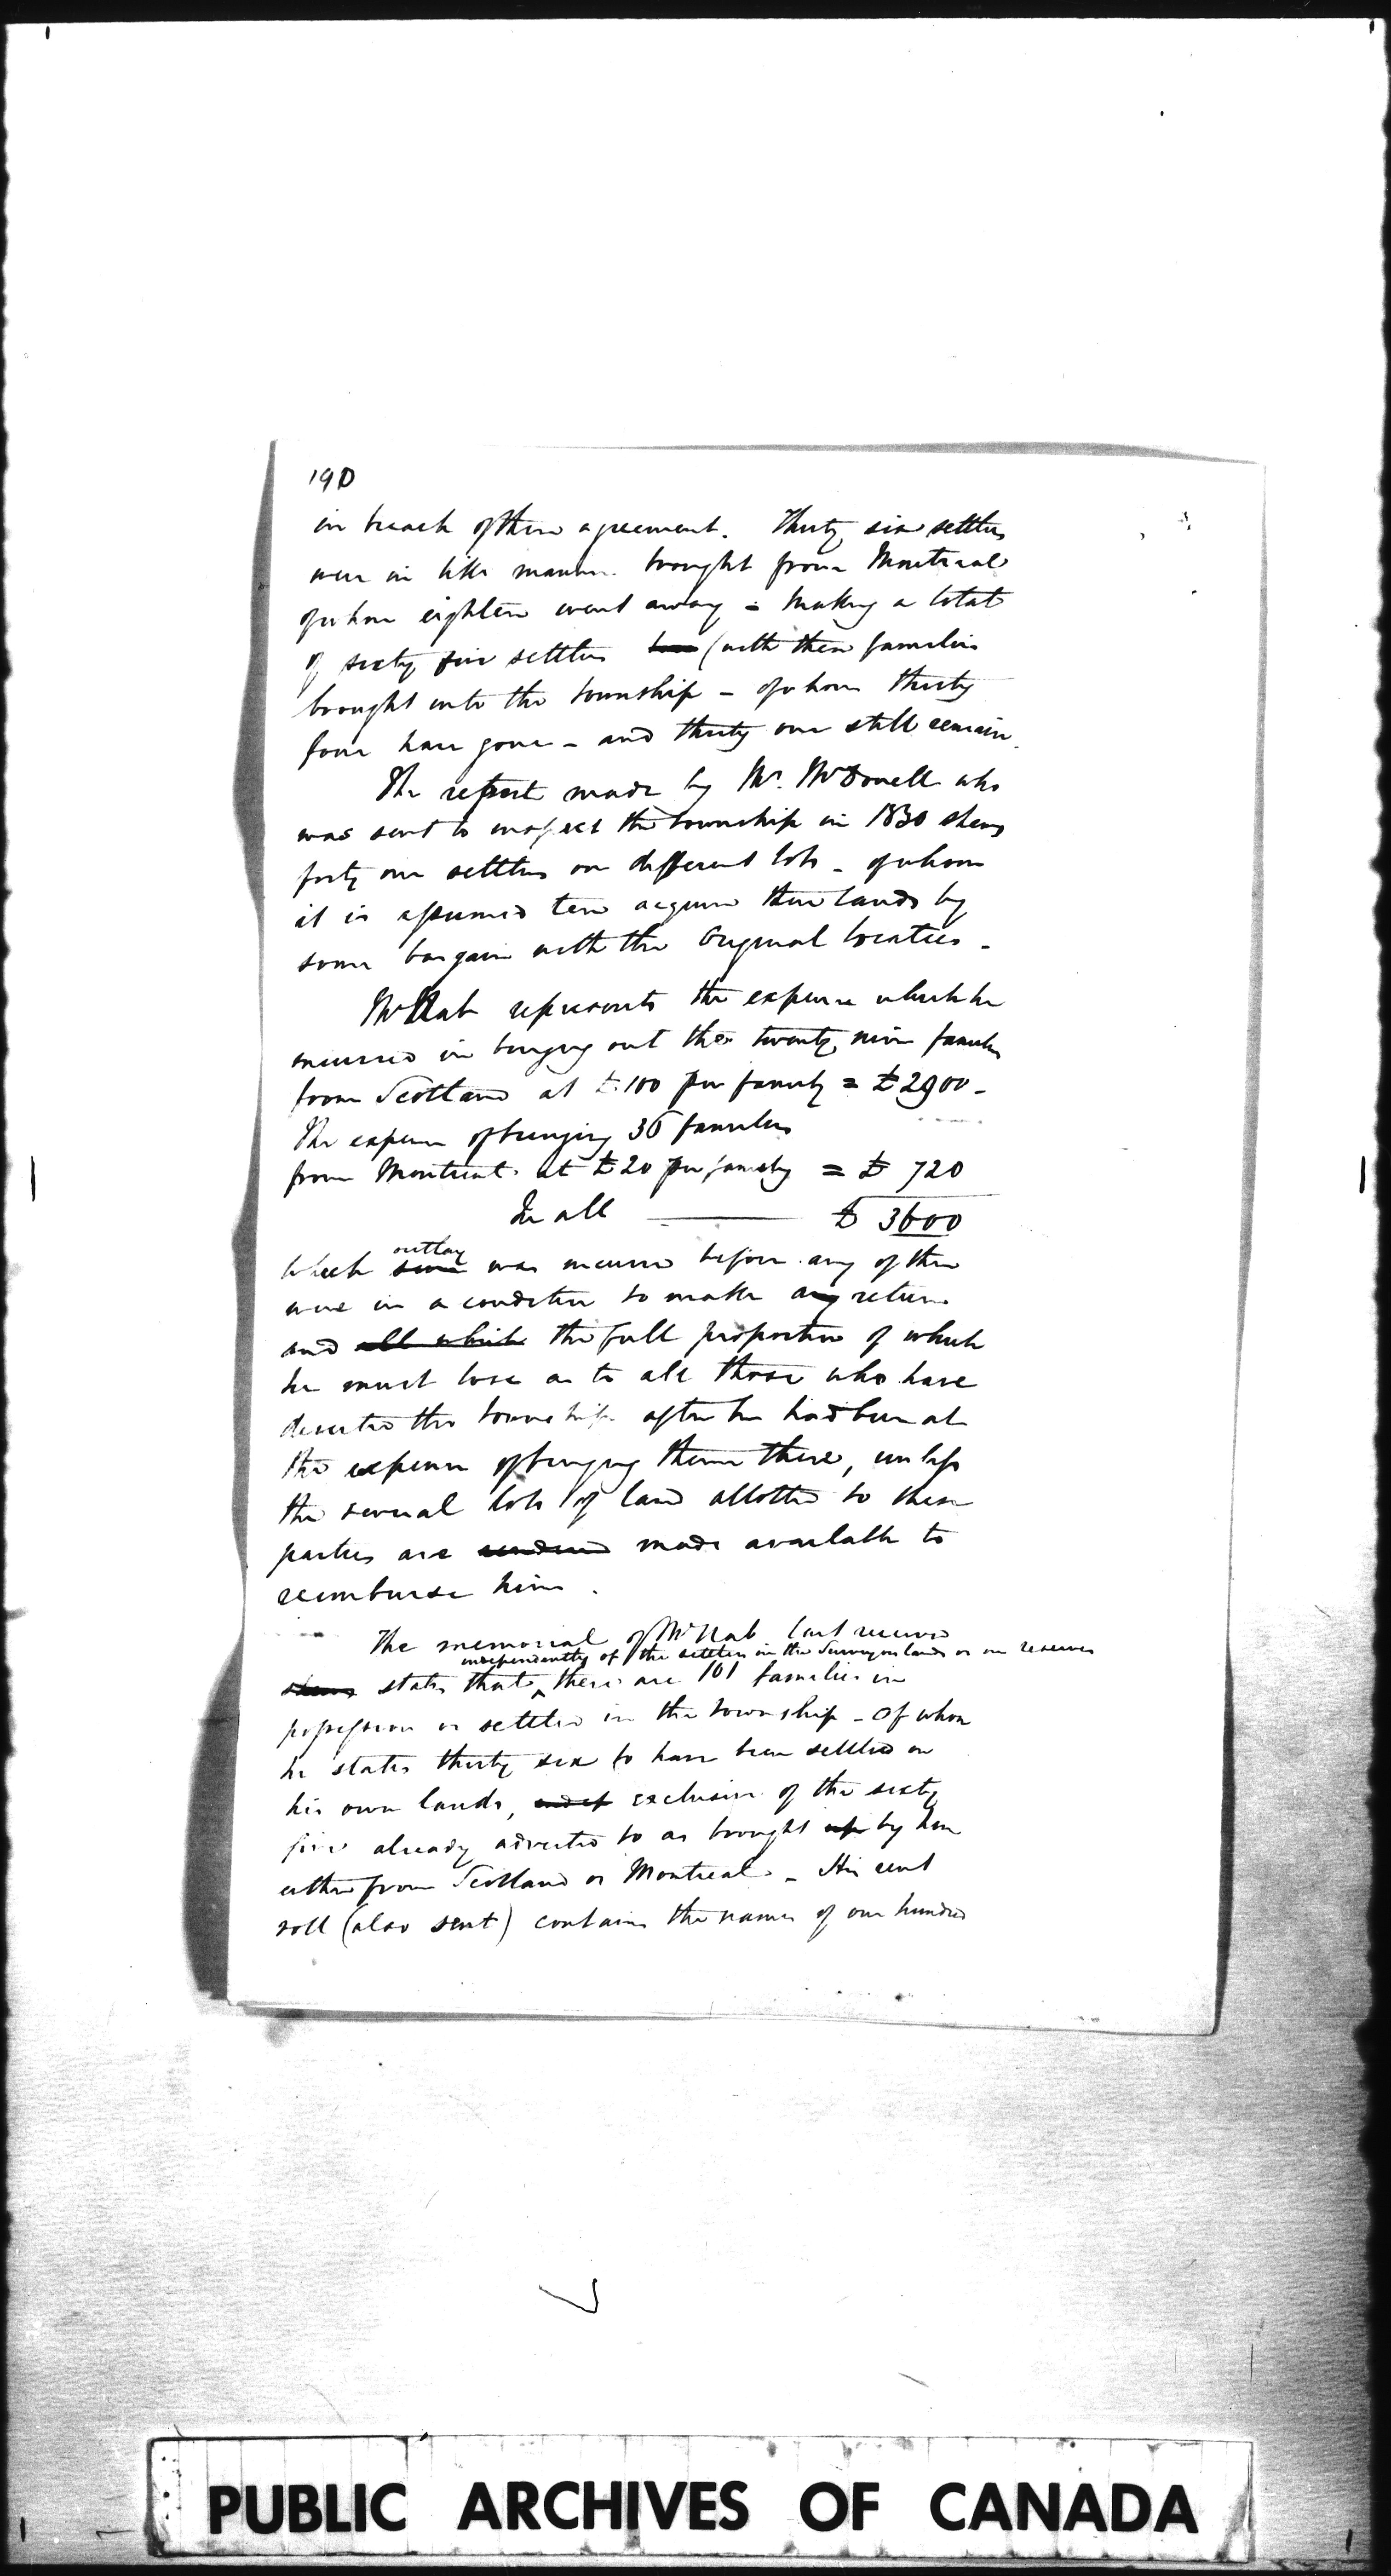 190
in breach of their agreement. Thirty six settlers
were in like manner brought from Montreal
of whom eighteen went away - making a total
of sixty five settlers (with their families
brought into the township - of whom thirty
four have gone - and thirty one still remain.
The report made by Mr. McDonell who
was sent to inspect the township in 1830 shews
forty one settlers on different lots - of whom
it is assumed ten acquired their lands by
some bargain with the Original locatees -
McNab represents the expense which he
incurred in bringing out the twenty nine families
from Scotland at £100 per family = £2900 -
The expense of bringing 36 families
from Montreal at £20 per family = £ 720
In all £ 3600
outlay
Which was incurred before any of them
were in a condition to make any return
and all which the full proportion of which
he must lose as to all those who have
deserted the township after he had been at
the expense of bringing them there, unless
the several lots of land allotted to these
parties are rendered made available to
reimburse him.
The memorial of McNab last received
independently of the settlers in the Surveyors lands or on reserves
shews states that there are 101 families in
possession or settled in the township - of whom
he states thirty six to have been settled on
his own lands, and of exclusive of the sixty
five already adverted to as brought up by him
either from Scotland or Montreal. - His rent
roll (also sent) contains the names of one hundred
PUBLIC ARCHIVES OF CANADA